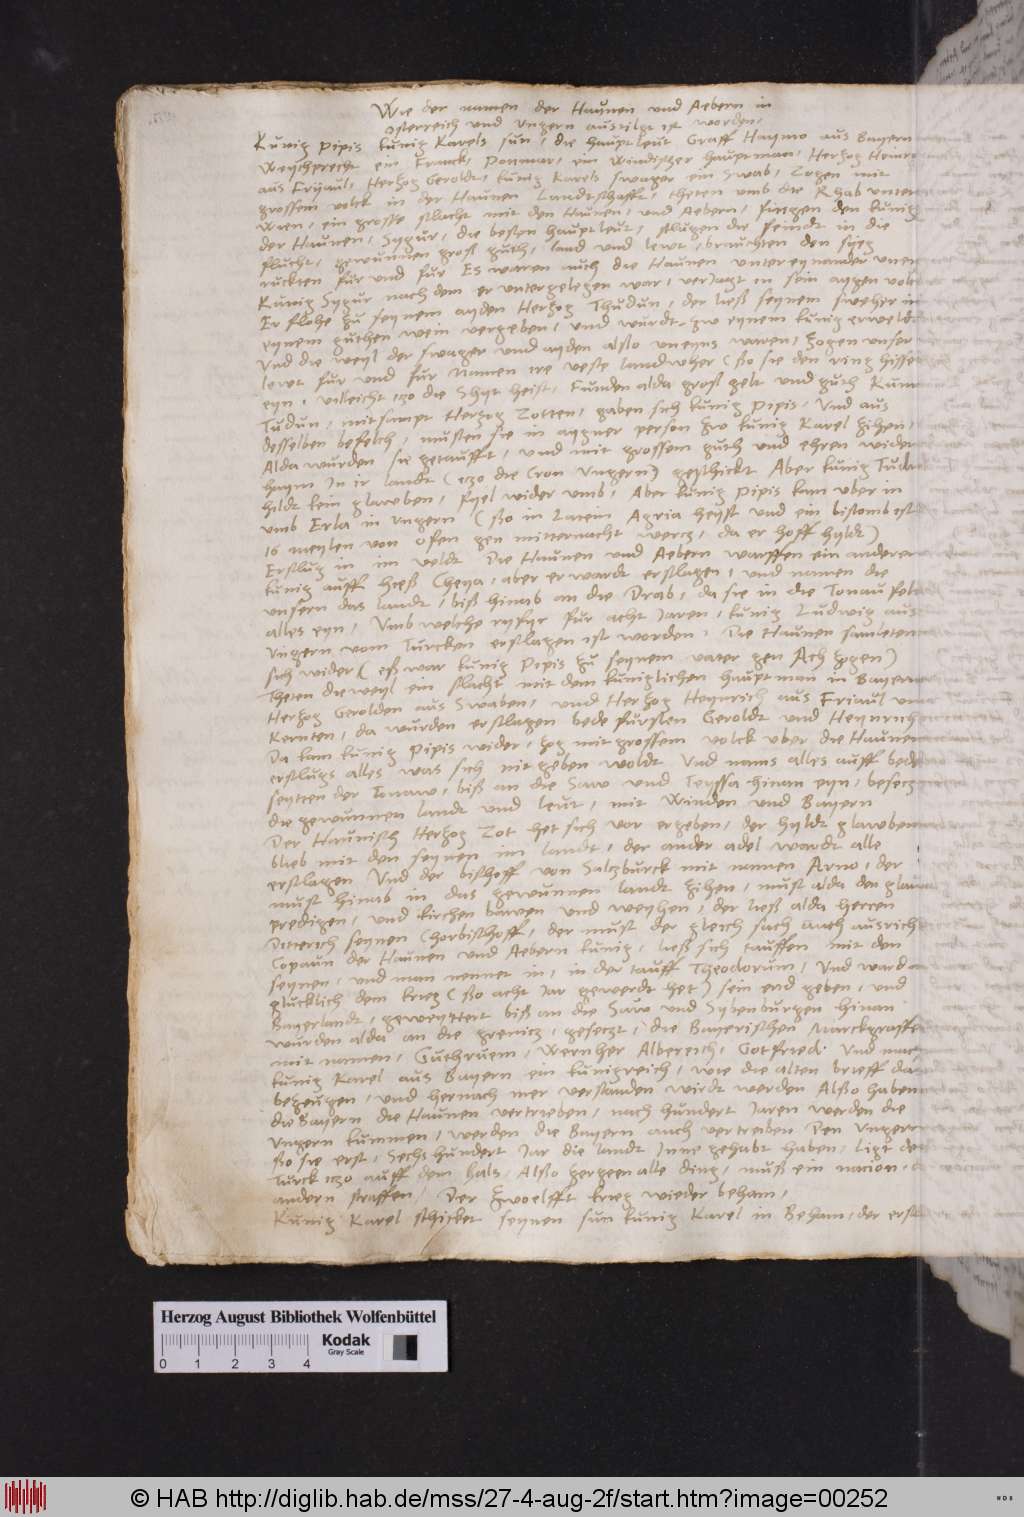 Wie der namen der Haunen und Aebern in
osterreich und vngern austilgt ist worden.
Kunig Pipis kunig Karels sun, die haupt leut Graff Haymo aus Bayern
Weycherecht ein Franck, Ponmar, ein Windischer hauptman, Herzog Heinre
aus Friaul, Herzog Geroldt, kunig Karels swager ein Swab, Zogen mit
grossem volck in der Haunen Landtschafft, theten umb die Rhab unter
Wien, ein grosse slacht mit den Haunen, und Aebern, fiengen den kunig
der Haunen, Sygur, die besten haupt leut, slugen die feindt in die
flucht, gewunnen groß guth, land und lewt, brauchten den syeg
ruckten fur und fur Es waren auch die Haunen untereynander unen
Kunig Sygur nach dem er untergelegen war, veriagt in sein aygen volck
Er flohe zu seynem ayden Herzog Thudun, der ließ seynem sweher in
eynem guthen wein vergeben, und wurdt zw eynem kunig erweldt
Vnd die weyl der swager und ayden alßo uneyns waren, zogen unser
lewt fur und fur Namen ire veste landwher (ßo sie den ring hissen
eyn, villeicht izo die Schut heist, Funden alda groß gelt und guth Kunig
Tudun, mitsampt Herzog Zotten, gaben sich kunig Pipis, Vnd aus
desselben befelch, musten sie in aygner person zw kunig Karel zihen,
Alda wurden sie getaufft, und mit grossem guth und ehren wider
haym In ir landt (izo die Cron Vngern) geschickt Aber kunig Tudun
hildt kein glawben, fyel wider umb, Aber kunig Pipis kam vber in
umb Erla in vngern (ßo in Latein Agria heyst und ein bistomb ist
16 meylen von Ofen gen mitternacht wercz, da er hoff hyldt)
Erslug in im veldt Die Haunen und Aebern warffen ein anderen
kunig auff hieß Cheya, aber er wardt erslagen, und namen die
unsern das landt, biß hinab an die Drab, da sie in die Tonau felt
alles eyn, Vmb welche fur acht Jaren, kunig Ludwig aus
Vngern vom Turcken erslagen ist worden. Die Haunen samleten
sich wider (eß war kunig Pipis zu seynem vater gen Ach zogen)
Theten die weyl ein slacht mit dem kuniglichen hauptman in Bayern
Herzog Gerolden aus Swaben, und Herzog Heynrich aus Friaul und
Kernten, da wurden erslagen bede fursten Geroldt und Heynrich
Da kam kunig Pipis wider, zog mit grossem volck uber die Haunen
erslugs alles was sich nit geben woldt Vnd nams alles auff bede
seytten der Tonaw, biß an die Saw und Teyssa hinan eyn, besecz
die gewunnen landt und leut, mit Winden und Bayern
Der Haunisch Herzog Zot het sich vor ergeben, der hyldt glawben
bleb mit den seynen im landt, der ander adel wardt alle
erslagen Vnd der bischoff von Salczburck mit namen Arno, der
must hinab in das gewunnen landt zihen, must alda den glaub
predigen, und kirchen bawen und weyhen, der ließ alda herren
Ditterich seynen Chorbischoff, der must der gleich sach auch ausrich
Copaun der Haunen und Aebern kunig, ließ sich tauffen mit den
seynen, und man nennet in, in der tauff Theodorum, Vnd ward a
glucklich dem krieg (ßo acht Jar gewerdt het) sein end geben, und
Bayerlandt, geweyttert biß an die Saw und Sybenburgen hinan
wurden alda an die grenicz, geseczt, die Bayerischen Marckgraffe
mit namen, Guthruem, Wernher Albereich, Gotfried. Vnd mac
kunig Karel aus Bayern ein kunigreich, wie die alten brieff da
bezeugen, und hernach mer verstanden wirdt werden Alßo haben
die Bayern die Haunen vertrieben, nach hundert Jaren werden die
Vngern kummen, werden die Bayern auch vertreiben Den Vngern
ßo sie erst, Sechs hundert Jar die landt Inne gehabt haben, ligt der
Turck izo auff dem hals, Alßo zergeen alle ding, muß ein nacion, d
andern straffen, Der zwoelfft krieg wieder beham,
Kunig Karel schicket seynen sun kunig Karel in Beham, der erst
Herzog August Bibliothek Wolfenbüttel
Kodak
Gray Scale
0 1 2 3 4
© HAB http://diglib.hab.de/mss/27-4-aug-2f/start.htm?image=00252